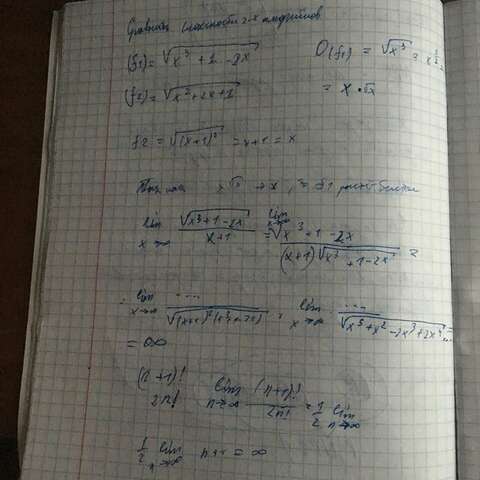 Сравнить сложности 2-х алгоритмов
(f1) = √(x³ + 1 - 2x)    O(f1) = √x³ = x^(3/2) =
(f2) = √(x² + 2x + 1)    = x · √x
f2 = √(x+1)² = x+1 = x
x√x > x, f1 растёт
lim x→∞ √(x³+1-2x) / (x+1) = lim x→∞ (x³ + 1 - 2x) / ((x+1)√(x³+1-2x)) =
= lim x→∞ ... / √((x+1)² = lim x→∞ ... / √(x⁵ + x² - 2x³ + 2x⁴ ...
= ∞
(n+1)! / 2n!    lim n→∞ (n+1)! / 2n! = 1/2 lim n→∞
1/2 lim n→∞ n+1 = ∞